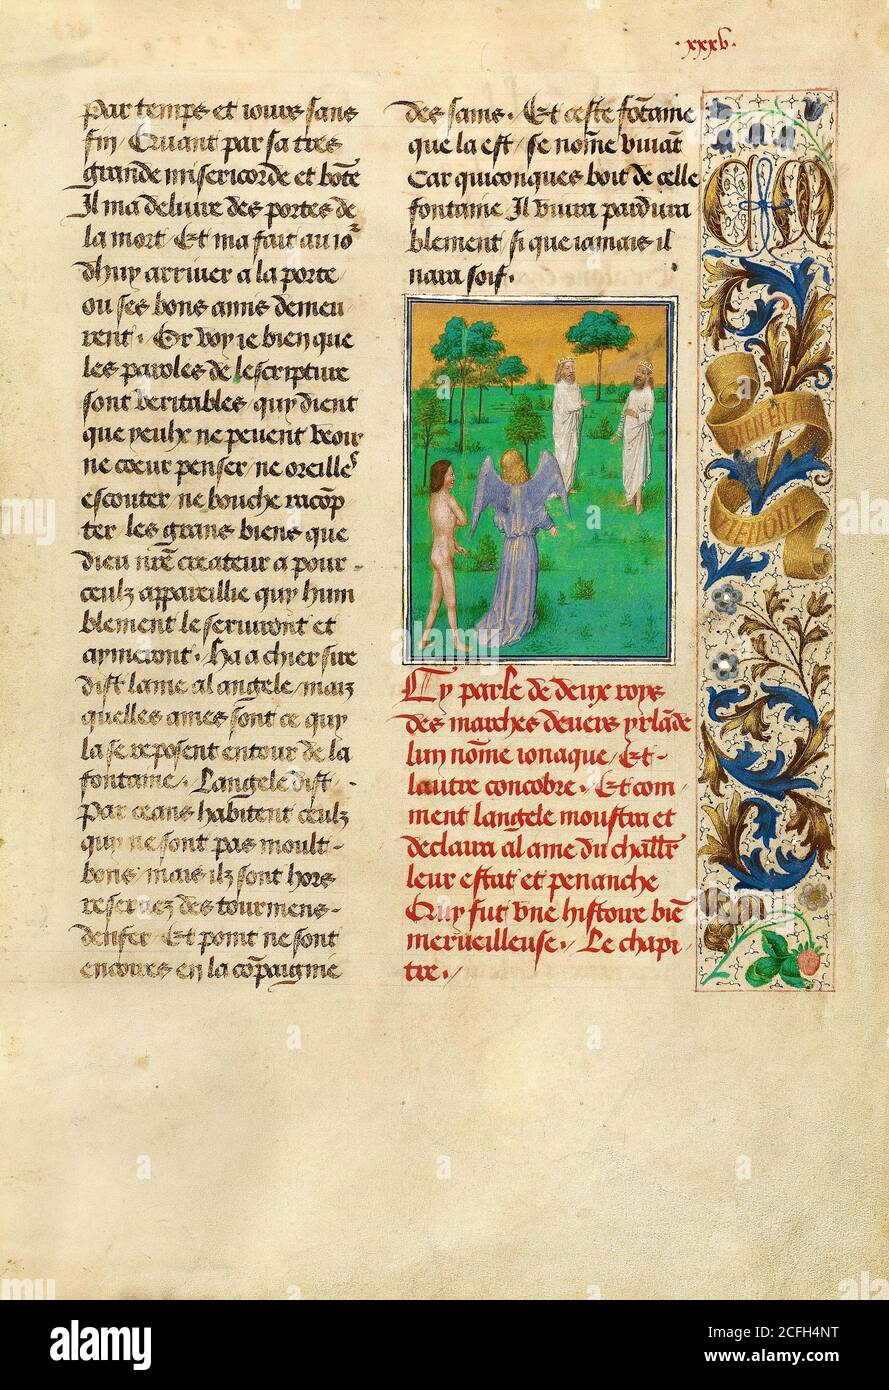 .xxxv.
par temps et iours sans
fin / Quant par sa tres
grande misericorde et bōte
Il ma delivre des portes de
la mort / Et ma fait au io^r
dhuy arriver a la porte
ou ses bons amis demeu
rent . Or voy ie bien que
les paroles de lescripture
sont veritables / quy dient
que yeulx ne peuent veoir
ne coeur penser / ne oreille
escouter ne bouche racōp
ter / les grans biens que
dieu nr̄e createur a pour-
ceulz appareillie quy hum
blement le serviront et
aymeront . Ha a chier sire
dist lame al angele / maiz
quelles ames sont ce quy
la se reposent entour de la
fontaine . Langele dist .
Par ceans habitent ceulz
quy ne sont pas moult-
bons / mais ilz sont hors
reservez des tourmens-
denfer . Et point ne sont
encores en la cōpaignie
des sains . Et ceste fōtaine
que la est / se nōme vivāt
Car quiconques boit de celle
fontaine Il vivra pardura
blement / si que iamais il
nara soif .
Cy parle de deux roys
des marches devers yrlāde
lun nōme ionaque / Et-
lautre concobre . Et com
ment langele moustra et
declaira al ame du chl̄r
leur estat et penanche
Quy fut vne histoire biē
merveilleuse . Le chapi
tre . /
BIEN EN A
VIENGNE
alamy
Image ID: 2CFH4NT
www.alamy.com